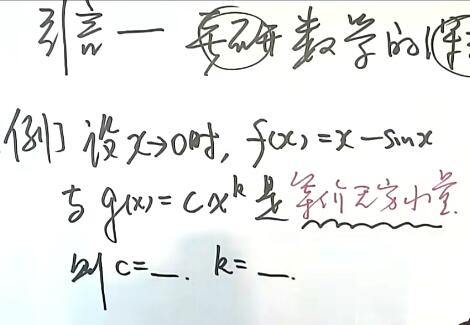 引言一 考研数学的
例] 设x→0时, f(x)=x-sinx
与g(x)=cx^k是等价无穷小量.
则c=__. k=__.